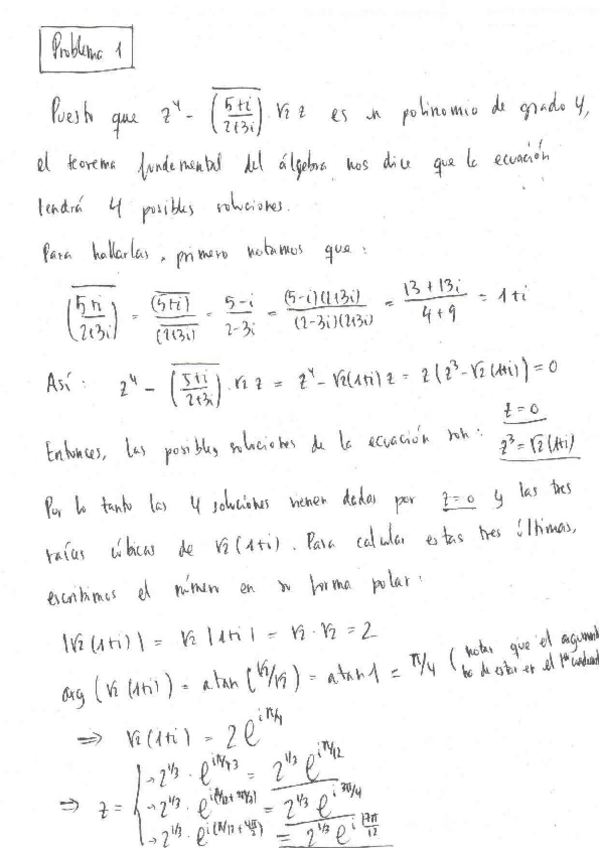 Problema 1
Puesto que z⁴ - \overline{(\frac{5+i}{2+3i})} · √2 z es un polinomio de grado 4,
el teorema fundamental del álgebra nos dice que la ecuación
tendrá 4 posibles soluciones.
Para hallarlas, primero notamos que:
\overline{(\frac{5+i}{2+3i})} = \frac{\overline{(5+i)}}{\overline{(2+3i)}} = \frac{5-i}{2-3i} = \frac{(5-i)(2+3i)}{(2-3i)(2+3i)} = \frac{13+13i}{4+9} = 1+i
Así: z⁴ - \overline{(\frac{5+i}{2+3i})} · √2 z = z⁴ - √2(1+i) z = z(z³ - √2(1+i)) = 0
Entonces, las posibles soluciones de la ecuación son: z=0
z³ = √2(1+i)
Por lo tanto las 4 soluciones vienen dadas por z=0 y las tres
raíces cúbicas de √2(1+i). Para calcular estas tres últimas,
escribimos el número en su forma polar:
|√2(1+i)| = √2 |1+i| = √2 · √2 = 2
arg(√2(1+i)) = atan(√2/√2) = atan 1 = π/4 (notar que el argumento
ha de estar en el 1er
⇒ √2(1+i) = 2e^{iπ/4}
⇒ z = { → 2^{1/3} · e^{iπ/4·3} = 2^{1/3} e^{iπ/12}
→ 2^{1/3} · e^{i(π/12+2π/3)} = 2^{1/3} e^{i3π/4}
→ 2^{1/3} · e^{i(π/12+4π/3)} = 2^{1/3} e^{i\frac{17π}{12}}